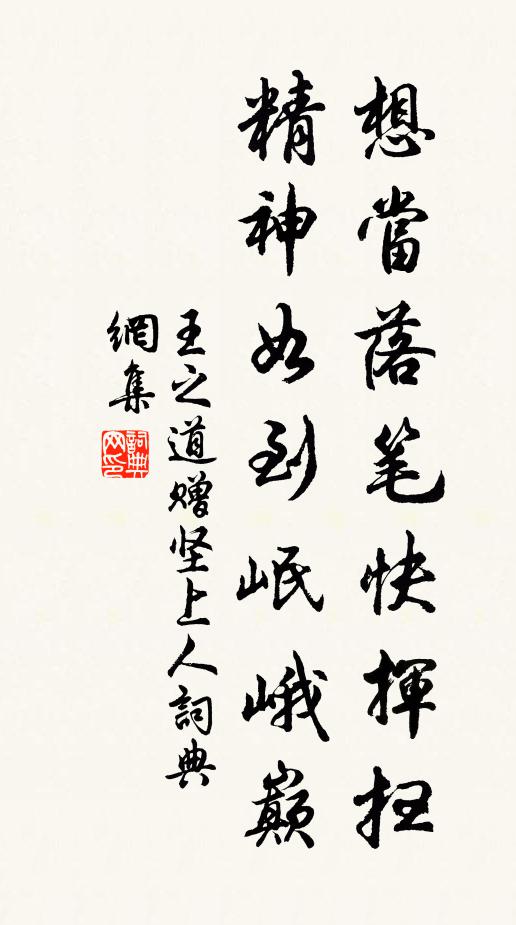 想當落笔快揮扫
精神如到岷峨巔
王之道赠坚上人詞典
網集
詞典
网印